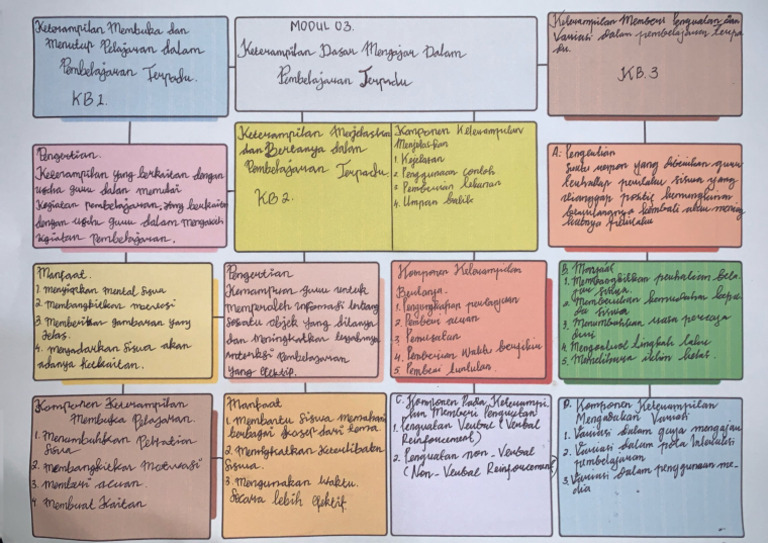 Keterampilan Membuka dan
Menutup Pelajaran dalam
Pembelajaran Terpadu.
KB 1.
MODUL 03.
Keterampilan Dasar Mengajar Dalam
Pembelajaran Terpadu
Keterampilan Memberi Penguatan dan
Variasi dalam pembelajaran terpa
du.
KB. 3
Pengertian.
Keterampilan yang berkaitan dengan
usaha guru dalam memulai
kegiatan pembelajaran, yang berkaitan
dengan usaha guru dalam mengakhi
kegiatan pembelajaran.
Keterampilan Menjelaskan
dan Bertanya dalam
Pembelajaran Terpadu.
KB 2.
Komponen Keterampilan
Menjelaskan
1. Kejelasan
2. Penggunaan contoh
3. Pemberian tekanan
4. Umpan balik
A. Pengertian
Suatu respon yang diberikan guru
terhadap perilaku siswa yang
dianggap positif kemungkinan
berulangnya kembali atau mening
katnya perilaku
Manfaat.
1. menyiapkan mental siswa
2. Membangkitkan motivasi
3. Memberikan gambaran yang
jelas.
4. menyadarkan siswa akan
adanya keterkaitan.
Pengertian
Kemampuan guru untuk
memperoleh informasi tentang
sesuatu objek yang ditanya
dan meningkatkan terjadinya
interaksi pembelajaran
yang efektif.
Komponen Keterampilan
Bertanya.
1. Pengungkapan pertanyaan
2. Pemberi acuan
3. Pemusatan
4. Pemberian Waktu berfikir
5. Pemberi tuntutan.
B. Manfaat
1. Membangkitkan perhatian bela
jar siswa.
2. Memberikan kemudahan kepa
da siswa
3. Menumbuhkan rasa percaya
diri
4. Mengontrol tingkah laku
5. Memelihara iklim kelas.
Komponen Keterampilan
Membuka Pelajaran.
1. Menumbuhkan Perhatian
Siswa
2. Membangkitkan Motivasi
3. Memberi acuan
4. Membuat Kaitan
Manfaat
1. Membantu Siswa memahami
berbagai konsep dari tema.
2. Meningkatkan Keterlibatan
Siswa.
3. Mengunakan Waktu.
Secara lebih efektif
C. Komponen Pada Keterampi
lan Memberi Penguatan
1. Penguatan Verbal (Verbal
Reinforcement)
2. Penguatan non-Verbal
(Non-Verbal Reinforcement)
D. Komponen Keterampilan
Mengadakan Variasi
1. Variasi dalam gaya mengajar
2. Variasi dalam pola Interaksi
pembelajaran
3. Variasi dalam penggunaan me-
dia